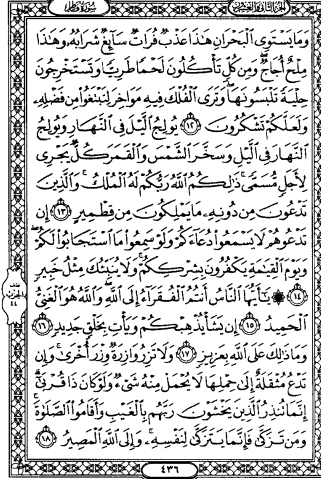 سورة فاطر
الجزء الثاني والعشرون
وَمَا يَسْتَوِي الْبَحْرَانِ هَٰذَا عَذْبٌ فُرَاتٌ سَائِغٌ شَرَابُهُ وَهَٰذَا
مِلْحٌ أُجَاجٌ وَمِن كُلٍّ تَأْكُلُونَ لَحْمًا طَرِيًّا وَتَسْتَخْرِجُونَ
حِلْيَةً تَلْبَسُونَهَا وَتَرَى الْفُلْكَ فِيهِ مَوَاخِرَ لِتَبْتَغُوا مِن فَضْلِهِ
وَلَعَلَّكُمْ تَشْكُرُونَ ﴿١٢﴾ يُولِجُ اللَّيْلَ فِي النَّهَارِ وَيُولِجُ
النَّهَارَ فِي اللَّيْلِ وَسَخَّرَ الشَّمْسَ وَالْقَمَرَ كُلٌّ يَجْرِي
لِأَجَلٍ مُّسَمًّى ذَٰلِكُمُ اللَّهُ رَبُّكُمْ لَهُ الْمُلْكُ وَالَّذِينَ
تَدْعُونَ مِن دُونِهِ مَا يَمْلِكُونَ مِن قِطْمِيرٍ ﴿١٣﴾ إِن
تَدْعُوهُمْ لَا يَسْمَعُوا دُعَاءَكُمْ وَلَوْ سَمِعُوا مَا اسْتَجَابُوا لَكُمْ
وَيَوْمَ الْقِيَامَةِ يَكْفُرُونَ بِشِرْكِكُمْ وَلَا يُنَبِّئُكَ مِثْلُ خَبِيرٍ
﴿١٤﴾ ۞ يَا أَيُّهَا النَّاسُ أَنتُمُ الْفُقَرَاءُ إِلَى اللَّهِ وَاللَّهُ هُوَ الْغَنِيُّ
الْحَمِيدُ ﴿١٥﴾ إِن يَشَأْ يُذْهِبْكُمْ وَيَأْتِ بِخَلْقٍ جَدِيدٍ ﴿١٦﴾
وَمَا ذَٰلِكَ عَلَى اللَّهِ بِعَزِيزٍ ﴿١٧﴾ وَلَا تَزِرُ وَازِرَةٌ وِزْرَ أُخْرَىٰ وَإِن
تَدْعُ مُثْقَلَةٌ إِلَىٰ حِمْلِهَا لَا يُحْمَلْ مِنْهُ شَيْءٌ وَلَوْ كَانَ ذَا قُرْبَىٰ
إِنَّمَا تُنذِرُ الَّذِينَ يَخْشَوْنَ رَبَّهُم بِالْغَيْبِ وَأَقَامُوا الصَّلَاةَ
وَمَن تَزَكَّىٰ فَإِنَّمَا يَتَزَكَّىٰ لِنَفْسِهِ وَإِلَى اللَّهِ الْمَصِيرُ ﴿١٨﴾
٤٣٦